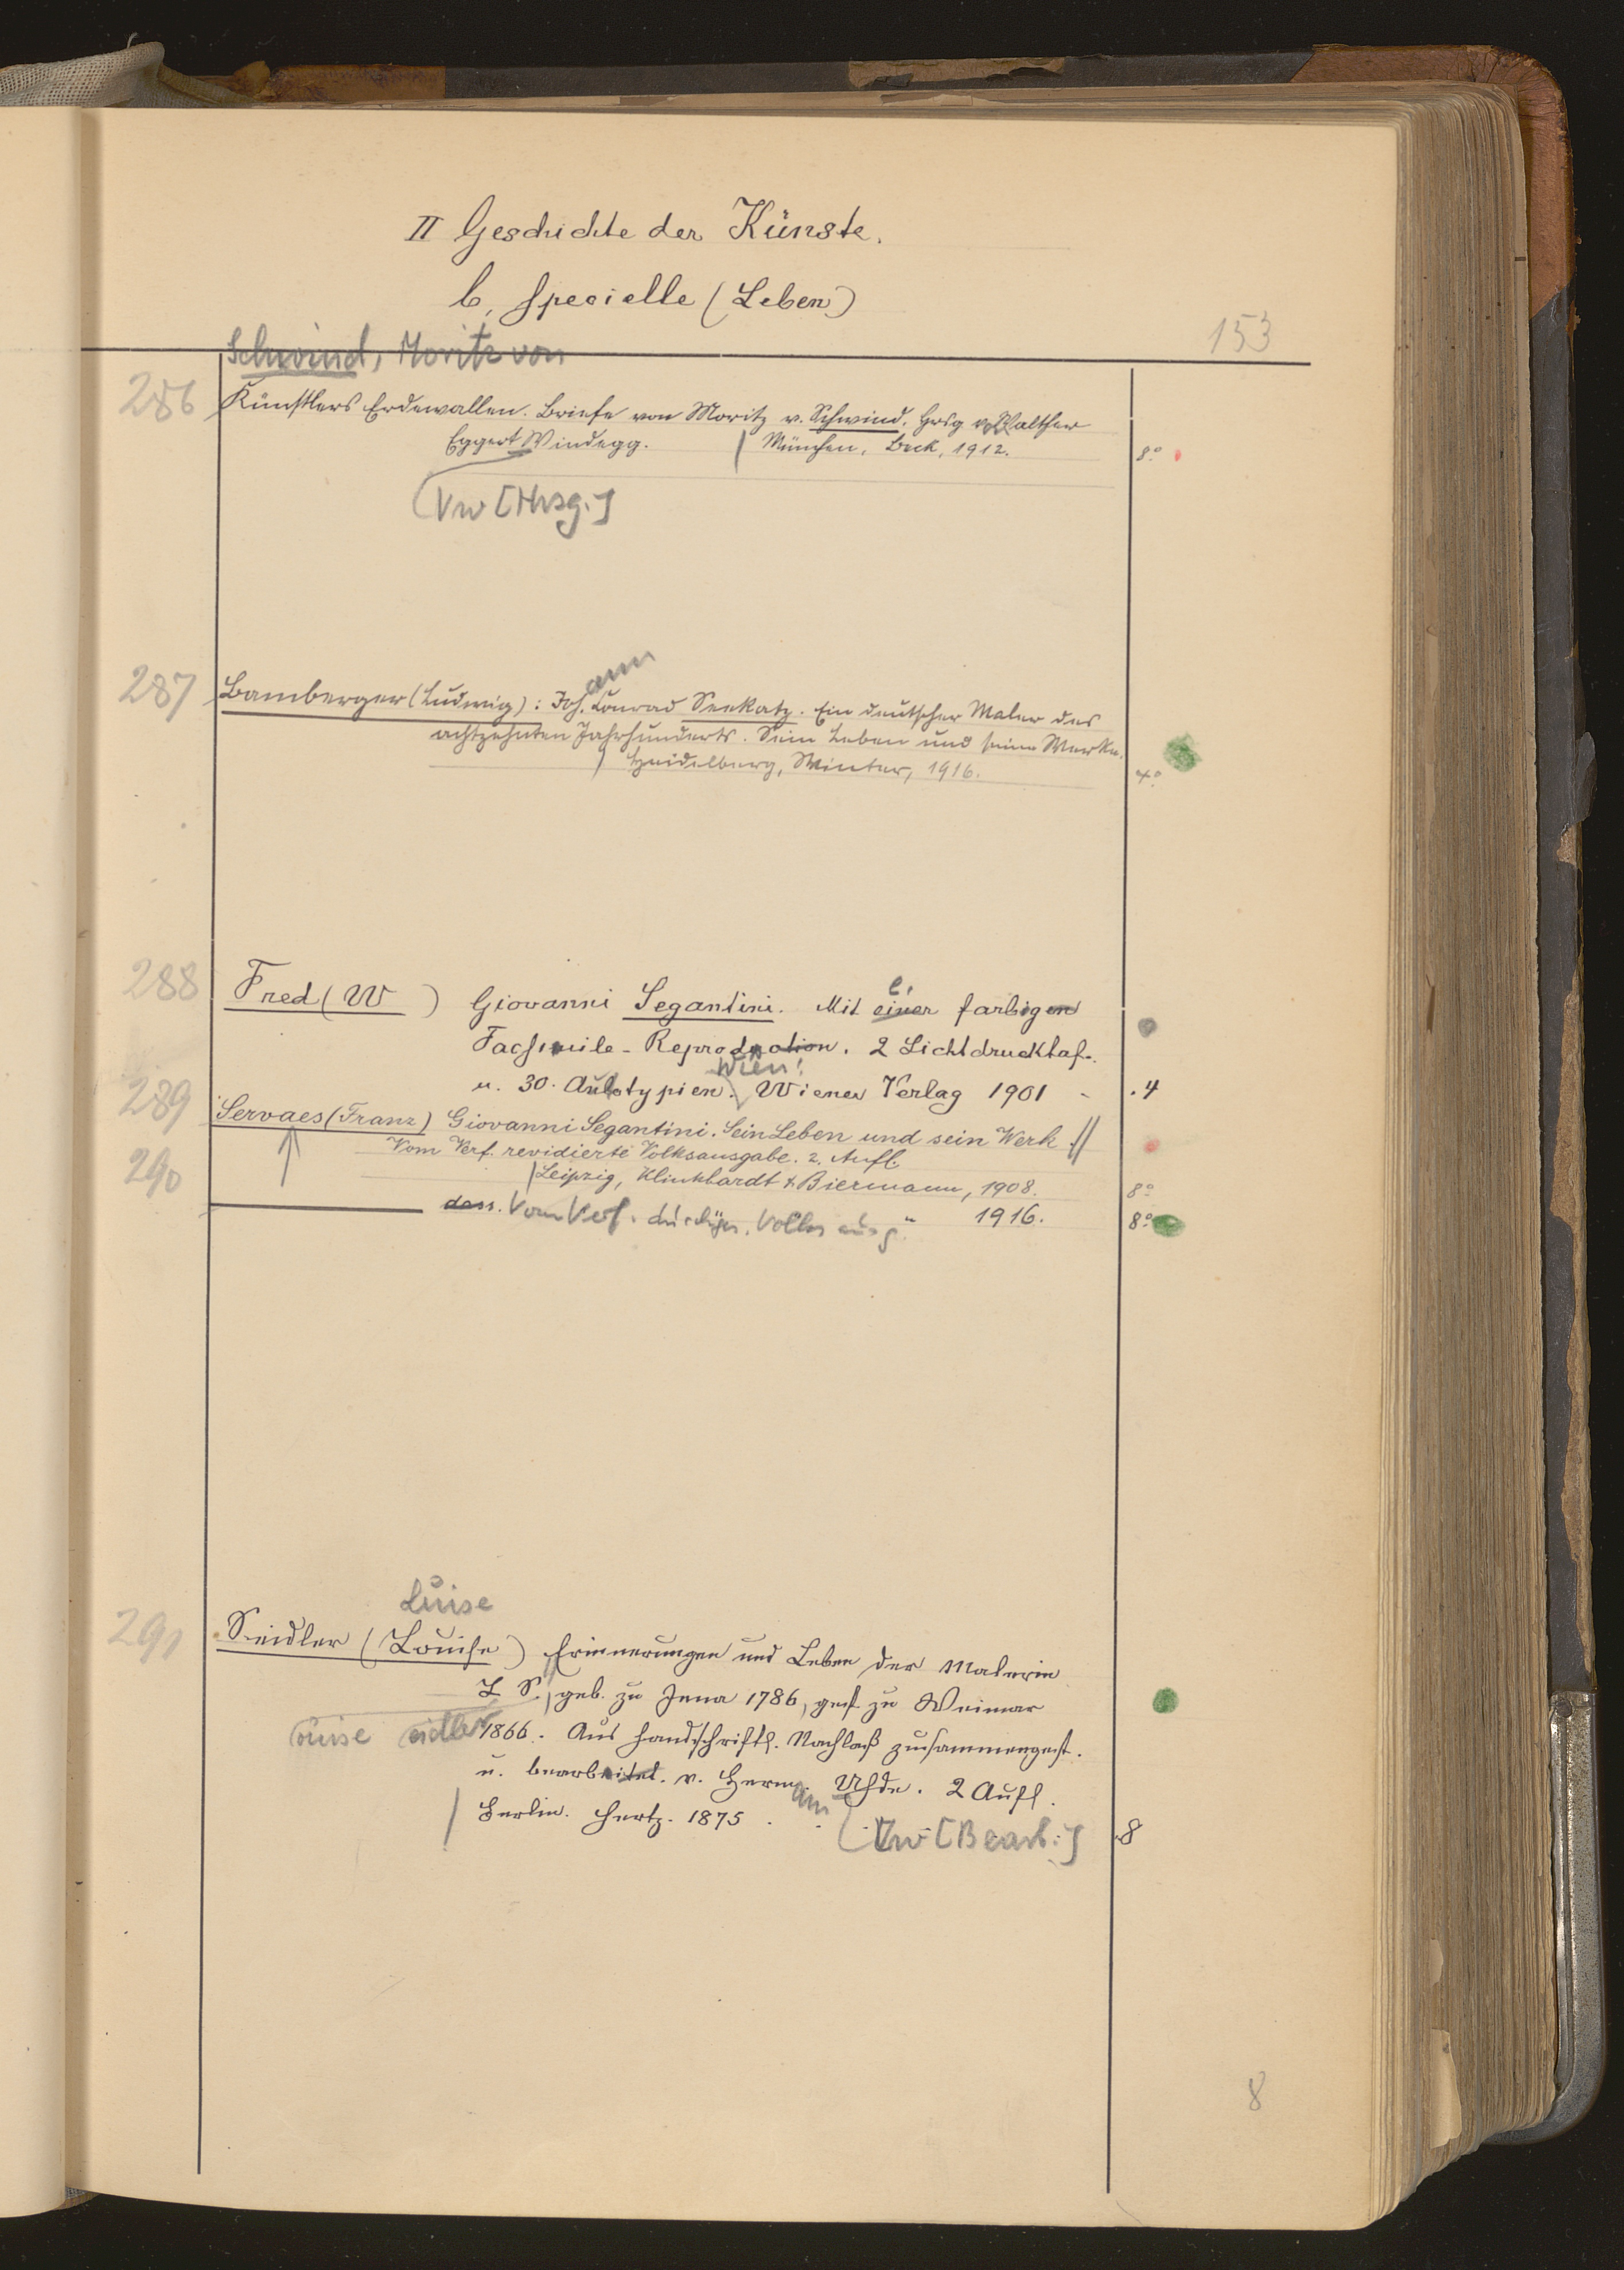 II Geschichte der Künste.
b, specielle (Leben)
153
Schwind, Moritz von
286 Künstlers Erdewallen. Briefe von Moritz v. Schwind. Hrsg v. Walther
Eggert Windegg. | München, Beck, 1912. 8°
(Vw [Hrsg.]
ann
287 Bamberger (Ludwig): Joh. Conrad Seekatz. Ein deutscher Maler des
achtzehnten Jahrhunderts. Sein Leben und seine Werke.
| Heidelberg, Winter, 1916. 4°
e.
288 Fred (W ) Giovanni Segantini. Mit einer farbigen
Facsimile-Reproduction. 2 Lichtdrucktaf.
Wien:
u. 30. Autotypien. Wiener Verlag 1901 - .4
289 Servaes (Franz) Giovanni Segantini. Sein Leben und sein Werk. //
Vom Verf. revidierte Volksausgabe. 2. Aufl.
290 | Leipzig, Klinkhardt & Biermann, 1908. 8°
— dass. Vom Verf. Volksausg. " 1916. 8°
Luise
291 Seidler (Louise) Erinnerungen und Leben der Malerin
L S., geb. zu Jena 1786, gest. zu Weimar
ouise eidler 1866. Aus handschriftl. Nachlaß zusammengest.
u. bearbeitet. v. Herm. Uhde. 2 Aufl.
ann
| Berlin. Hertz. 1875 . . (Vw [Bearb.] 8
8